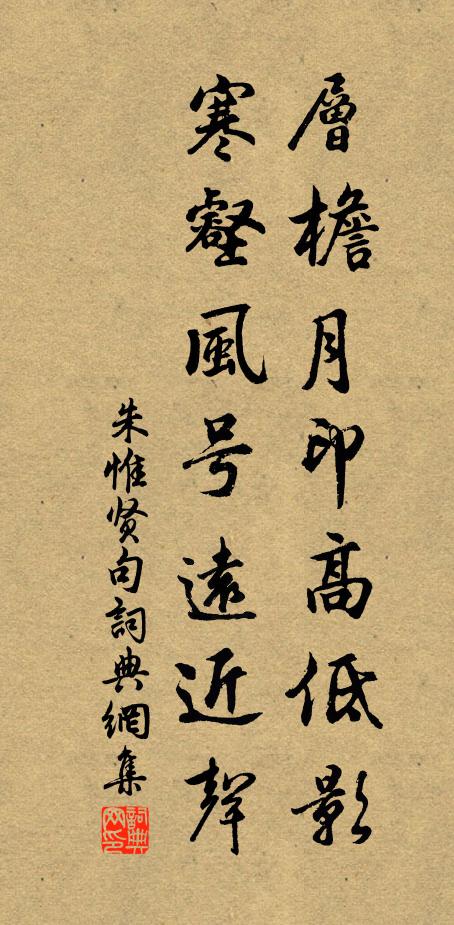 層檐月印高低影
寒壑風号遠近聲
朱惟贤句詞典網集
詞典网印